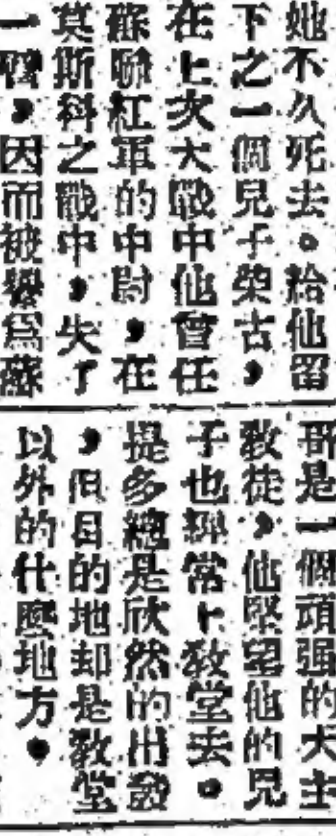 她不久死去。給他留
下之一個兒子榮古,
在上次大戰中他曾任
蘇聯紅軍的中尉,在
莫斯科之戰中,失了
一,因而被譽爲蘇
是一個頑强的天主
教徒,他堅望他的兒
子也常上教堂去。
提多總是欣然的出發
,但目的地却是教堂
以外的什麼地方。